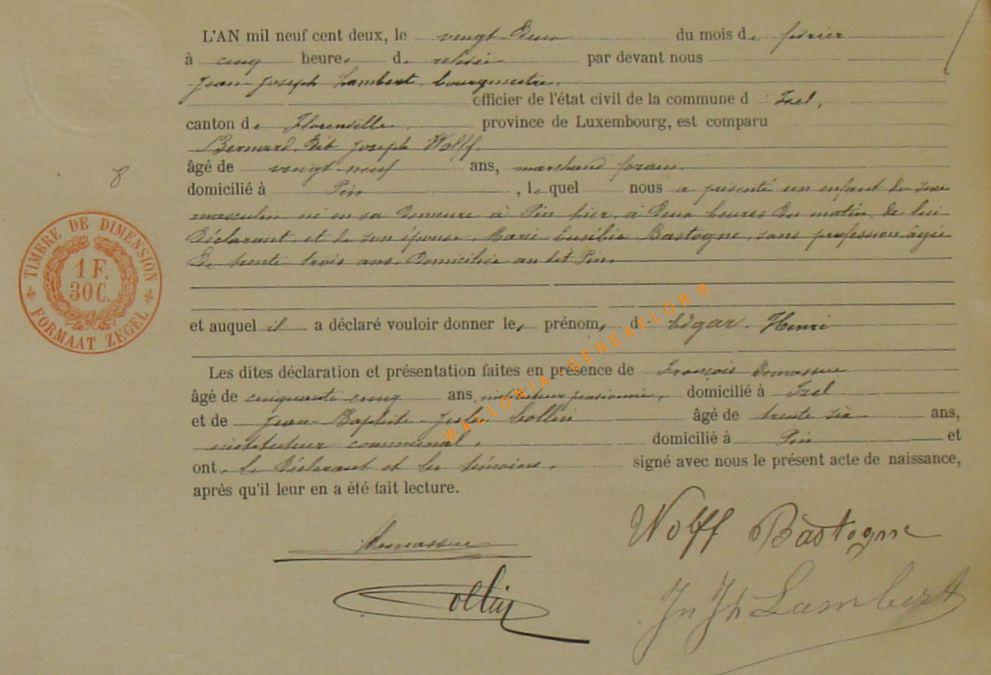 L'AN mil neuf cent deux, le vingt deux du mois de février
à cinq heures de relevée par devant nous
Jean Joseph Lambert, bourgmestre,
officier de l'état civil de la commune d Izel,
canton de Florenville, province de Luxembourg, est comparu
Bernard, dit Joseph Wolff,
âgé de vingt-neuf ans, marchand forain,
domicilié à Pin, lequel nous a présenté un enfant du sexe
masculin, né en sa demeure à Pin hier, à deux heures du matin, de lui
déclarant et de son épouse, Marie Bastogne, sans profession, âgée
de trente trois ans, domiciliée au dit Pin.
et auquel il a déclaré vouloir donner les prénoms d Edgar, Henri
Les dites déclaration et présentation faites en présence de François
âgé de cinquante cinq ans, instituteur pensionné, domicilié à Izel
et de Jean Baptiste Jules Collin âgé de trente six ans,
instituteur communal, domicilié à Pin et
ont, le déclarant et les témoins, signé avec nous le présent acte de naissance,
après qu'il leur en a été fait lecture.
Wolff Bastogne
Collin
Jn Jh Lambert
8
TIMBRE DE DIMENSION
1 F.
30 C.
FORMAAT ZEGEL
WALLONIA-GENEAFLOR®